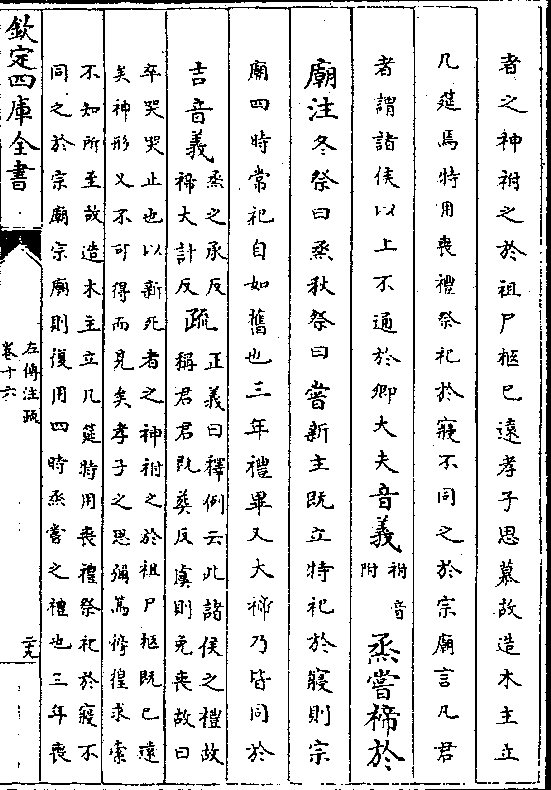 者之神祔之於祖尸柩已遠孝子思慕故造木主立
几筵焉特用喪禮祭祀於寢不同之於宗廟言凡君
者謂諸侯以上不通於卿大夫音義祔音附烝嘗禘於
廟注冬祭曰烝秋祭曰嘗新主既立特祀於寢則宗
廟四時常祀自如舊也三年禮畢又大禘乃皆同於
吉音義烝之承反禘大計反疏正義曰釋例云此諸侯之禮故稱君君既葬反虞則免喪故曰
卒哭哭止也以新死者之神祔之於祖尸柩既已遠
矣神形又不可得而見矣孝子之思彌篤傍徨求索
不知所至故造木主立几筵特用喪禮祭祀於寢不
同之於宗廟宗廟則復用四時烝嘗之禮也三年喪
欽定四庫全書
左傳注疏
卷十六